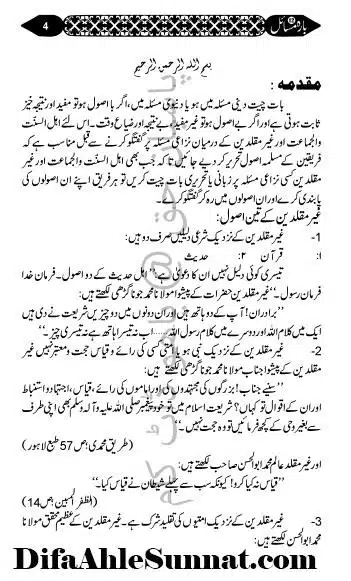 4
بارہ مسائل
بسم اللہ الرحمن الرحیم
مقدمہ :
بات چیت دینی مسئلہ میں ہو یا دنیوی مسئلہ میں، اگر با اصول ہو تو مفید اور نتیجہ خیز
ثابت ہوتی ہے اور اگر بے اصول ہو تو غیر مفید، بے نتیجہ اور ضیاع وقت۔ اس لئے اہل السنّت
والجماعت اور غیر مقلدین کے درمیان نزاعی مسئلہ پر گفتگو کرنے سے قبل مناسب ہے کہ
فریقین کے مسلمہ اصول تحریر کر دیے جائیں تاکہ جب بھی اہل السنّت والجماعت اور غیر
مقلدین کسی نزاعی مسئلہ پر زبانی یا تحریری بات چیت کریں تو ہر فریق اپنے ان اصولوں کی
پابندی کرے اور ان اصولوں میں رہ کر گفتگو کرے۔
غیر مقلدین کے تین اصول:
1- غیر مقلدین کے نزدیک شرعی دلیلیں صرف دو ہیں:
۱: قرآن ۲: حدیث
تیسری کوئی دلیل نہیں ان کا دعویٰ ہے: "اہل حدیث کے دو اصول۔ فرمان خدا
فرمان رسول۔" غیر مقلدین حضرات کے پیشوا مولانا محمد جوناگڑھی لکھتے ہیں:
"برادران! آپ کے دو ہاتھ ہیں اور ان دونوں میں دو چیزیں شریعت نے دی ہیں
ایک میں کلام اللہ اور دوسرے میں کلام رسول اللہ......اب نہ تیسرا ہاتھ ہے نہ تیسری چیز۔"
2- غیر مقلدین کے نزدیک نبی ہو یا امتی کسی کی رائے و قیاس حجت و معتبر نہیں غیر
مقلدین کے پیشوا جناب مولانا محمد جوناگڑھی لکھتے ہیں:
"سنیے جناب! بزرگوں کی مجتہدوں کی اور اماموں کی رائے، قیاس، اجتہاد و استنباط
اور ان کے اقوال تو کہاں؟ شریعت اسلام میں تو خود پیغمبر صلی اللہ علیہ وآلہ وسلم بھی اپنی طرف
سے بغیر وحی کے کچھ فرمائیں تو وہ حجت نہیں۔"
(طریق محمدی: ص 57 طبع لاہور)
اور غیر مقلد عالم محمد ابوالحسن صاحب لکھتے ہیں:
"قیاس نہ کیا کرو! کیونکہ سب سے پہلے شیطان نے قیاس کیا۔"
(الظفر المبین: ص 14)
3- غیر مقلدین کے نزدیک امتیوں کی تقلید شرک ہے۔ غیر مقلدین کے عظیم محقق مولانا
محمد ابوالحسن لکھتے ہیں:
DifaAhleSunnat.com